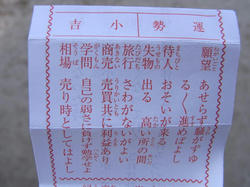 運勢小吉
願望 あせらず騒がずゆ
る〱進めばよし
待人 おそいが来る
失物 出る 高い所の間
旅行 さわがないがよい
商売 売買共に利益あり
学問 自己の弱さに負けず勉学せよ
相場 売り時としてはよし